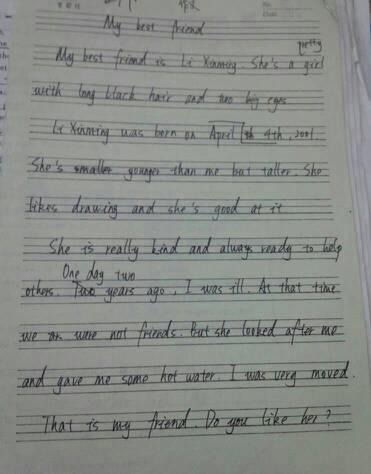 My best friend
pretty
My best friend is Li Xinming. She's a girl
with long black hair and two big eyes
Li Xinming was born on April 4th, 2001.
She's smaller younger than me but taller. She
likes drawing and she's good at it.
She is really kind and always ready to help
One day two
others. Two years ago, I was ill. At that time
we were not friends. But she looked after me
and gave me some hot water. I was very moved.
That is my friend. Do you like her?